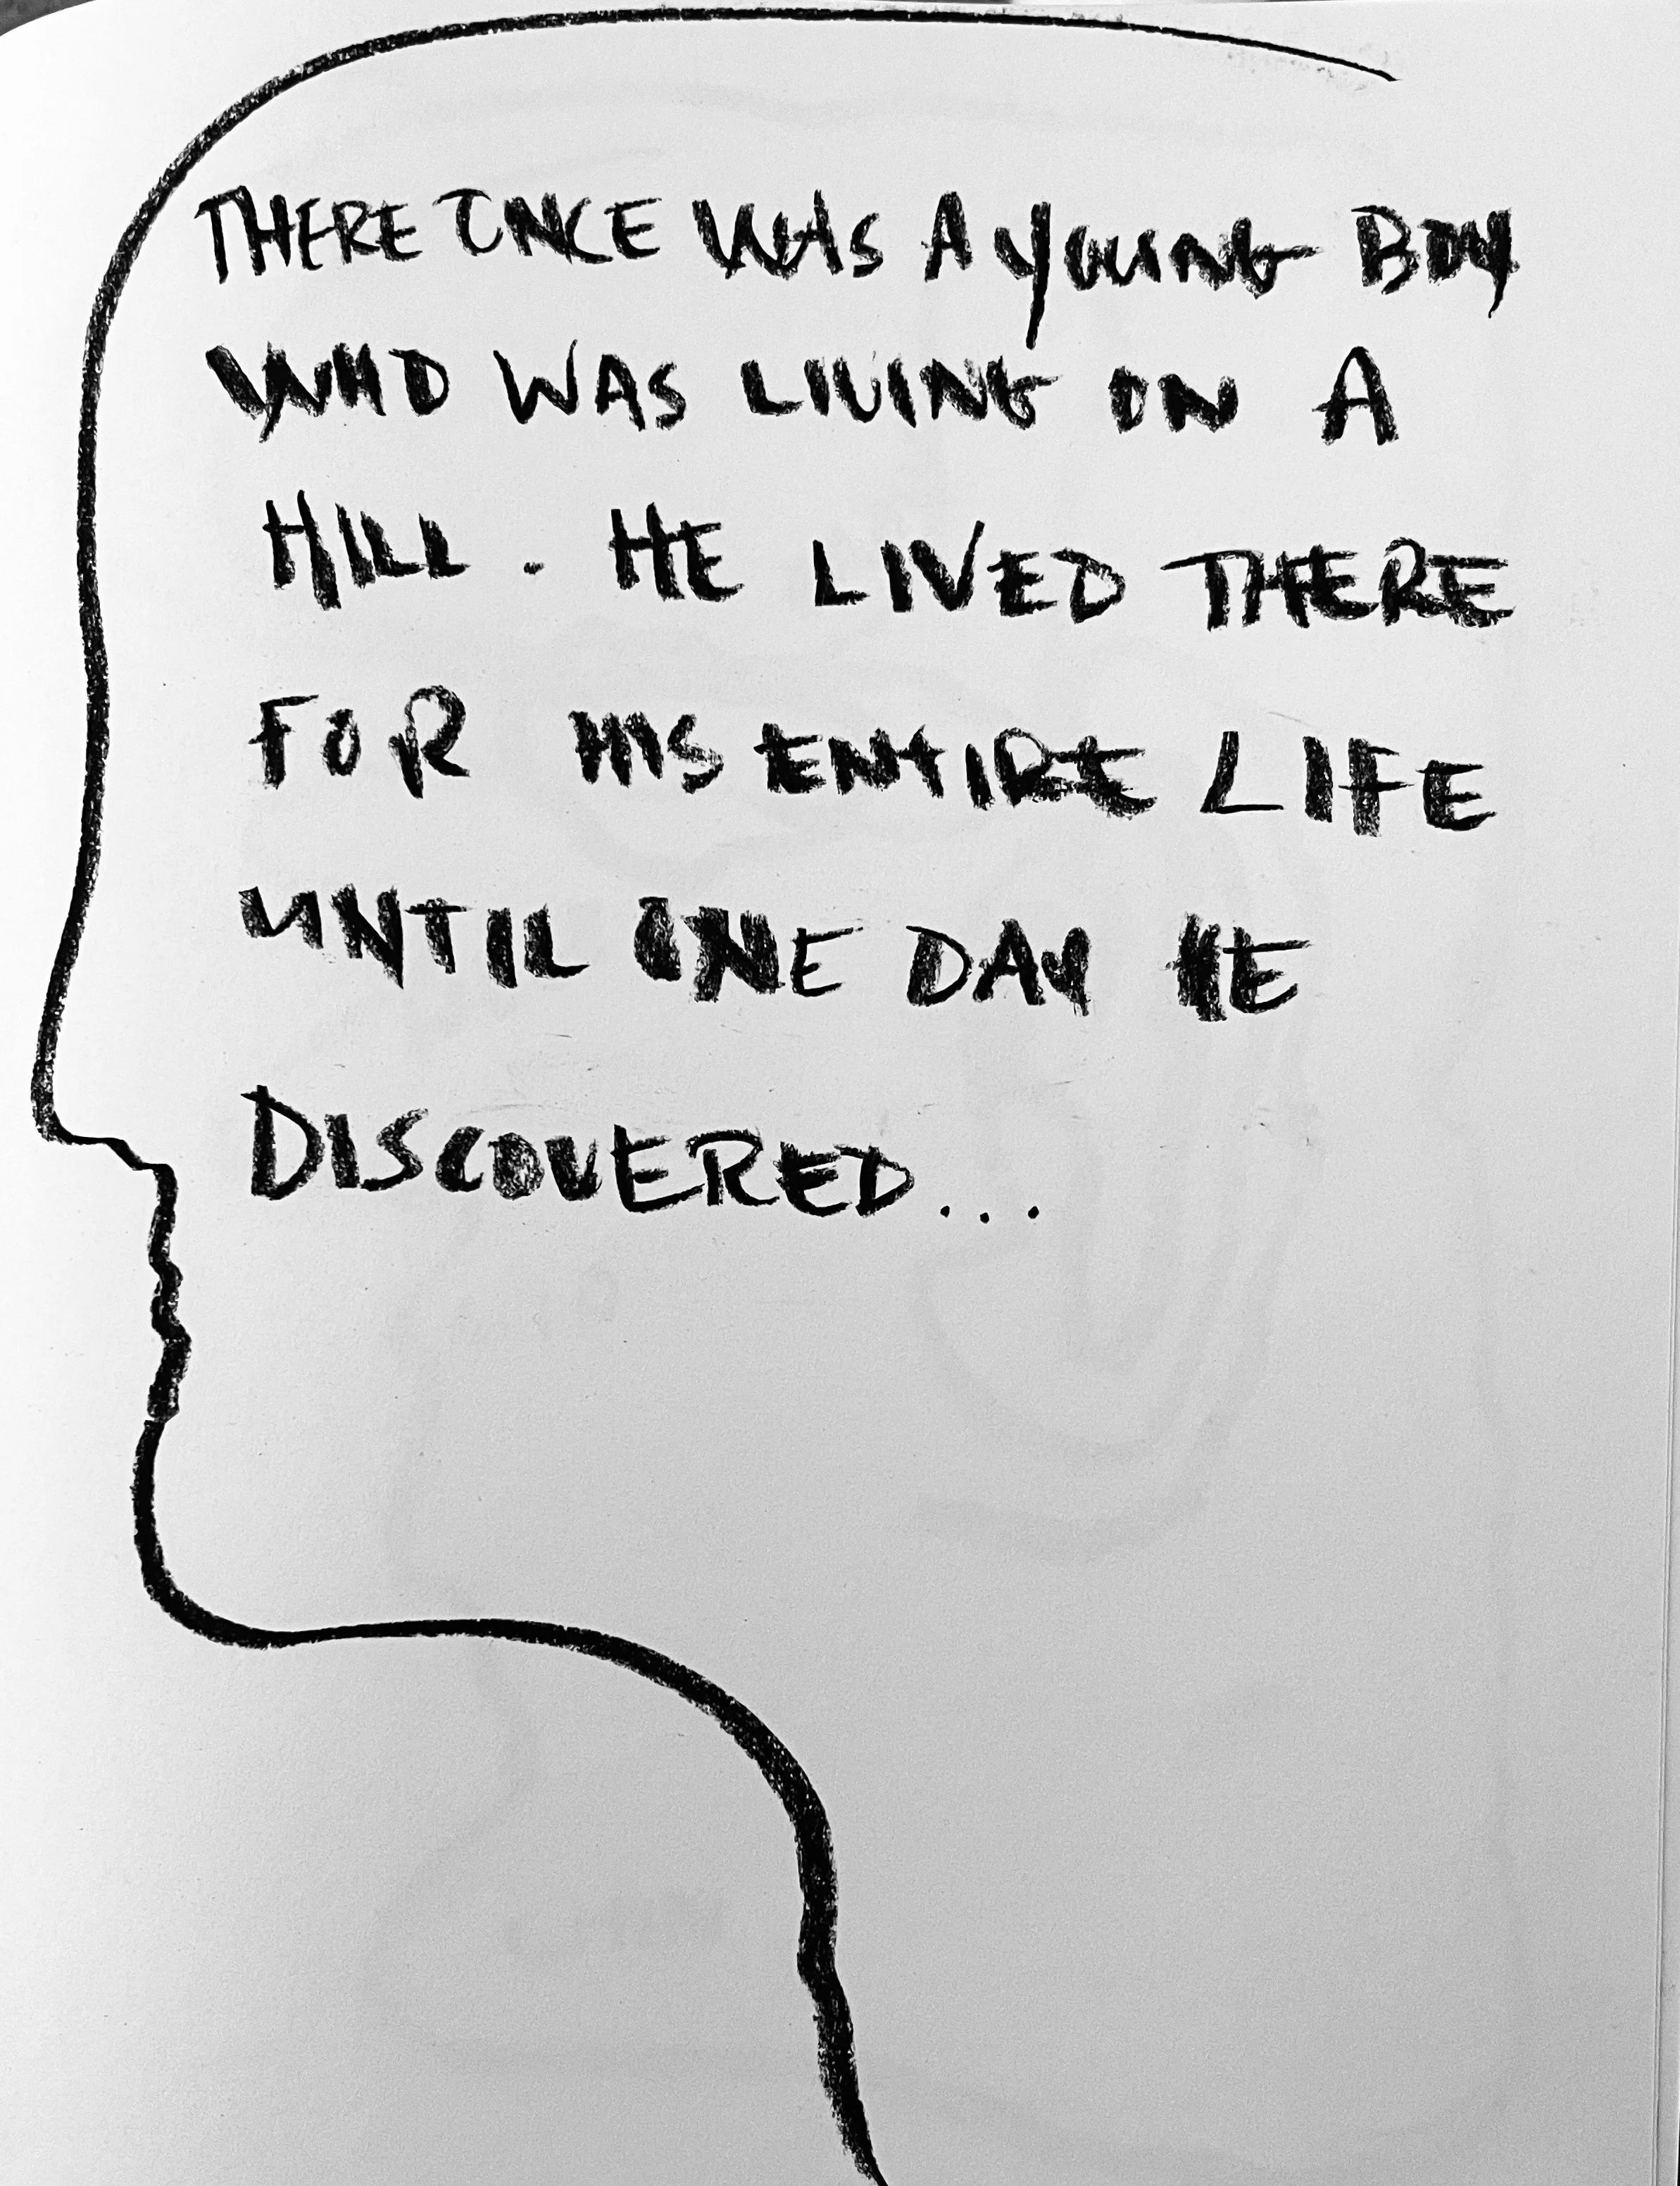 THERE ONCE WAS A YOUNG BOY
WHO WAS LIVING ON A
HILL. HE LIVED THERE
FOR HIS ENTIRE LIFE
UNTIL ONE DAY HE
DISCOVERED...